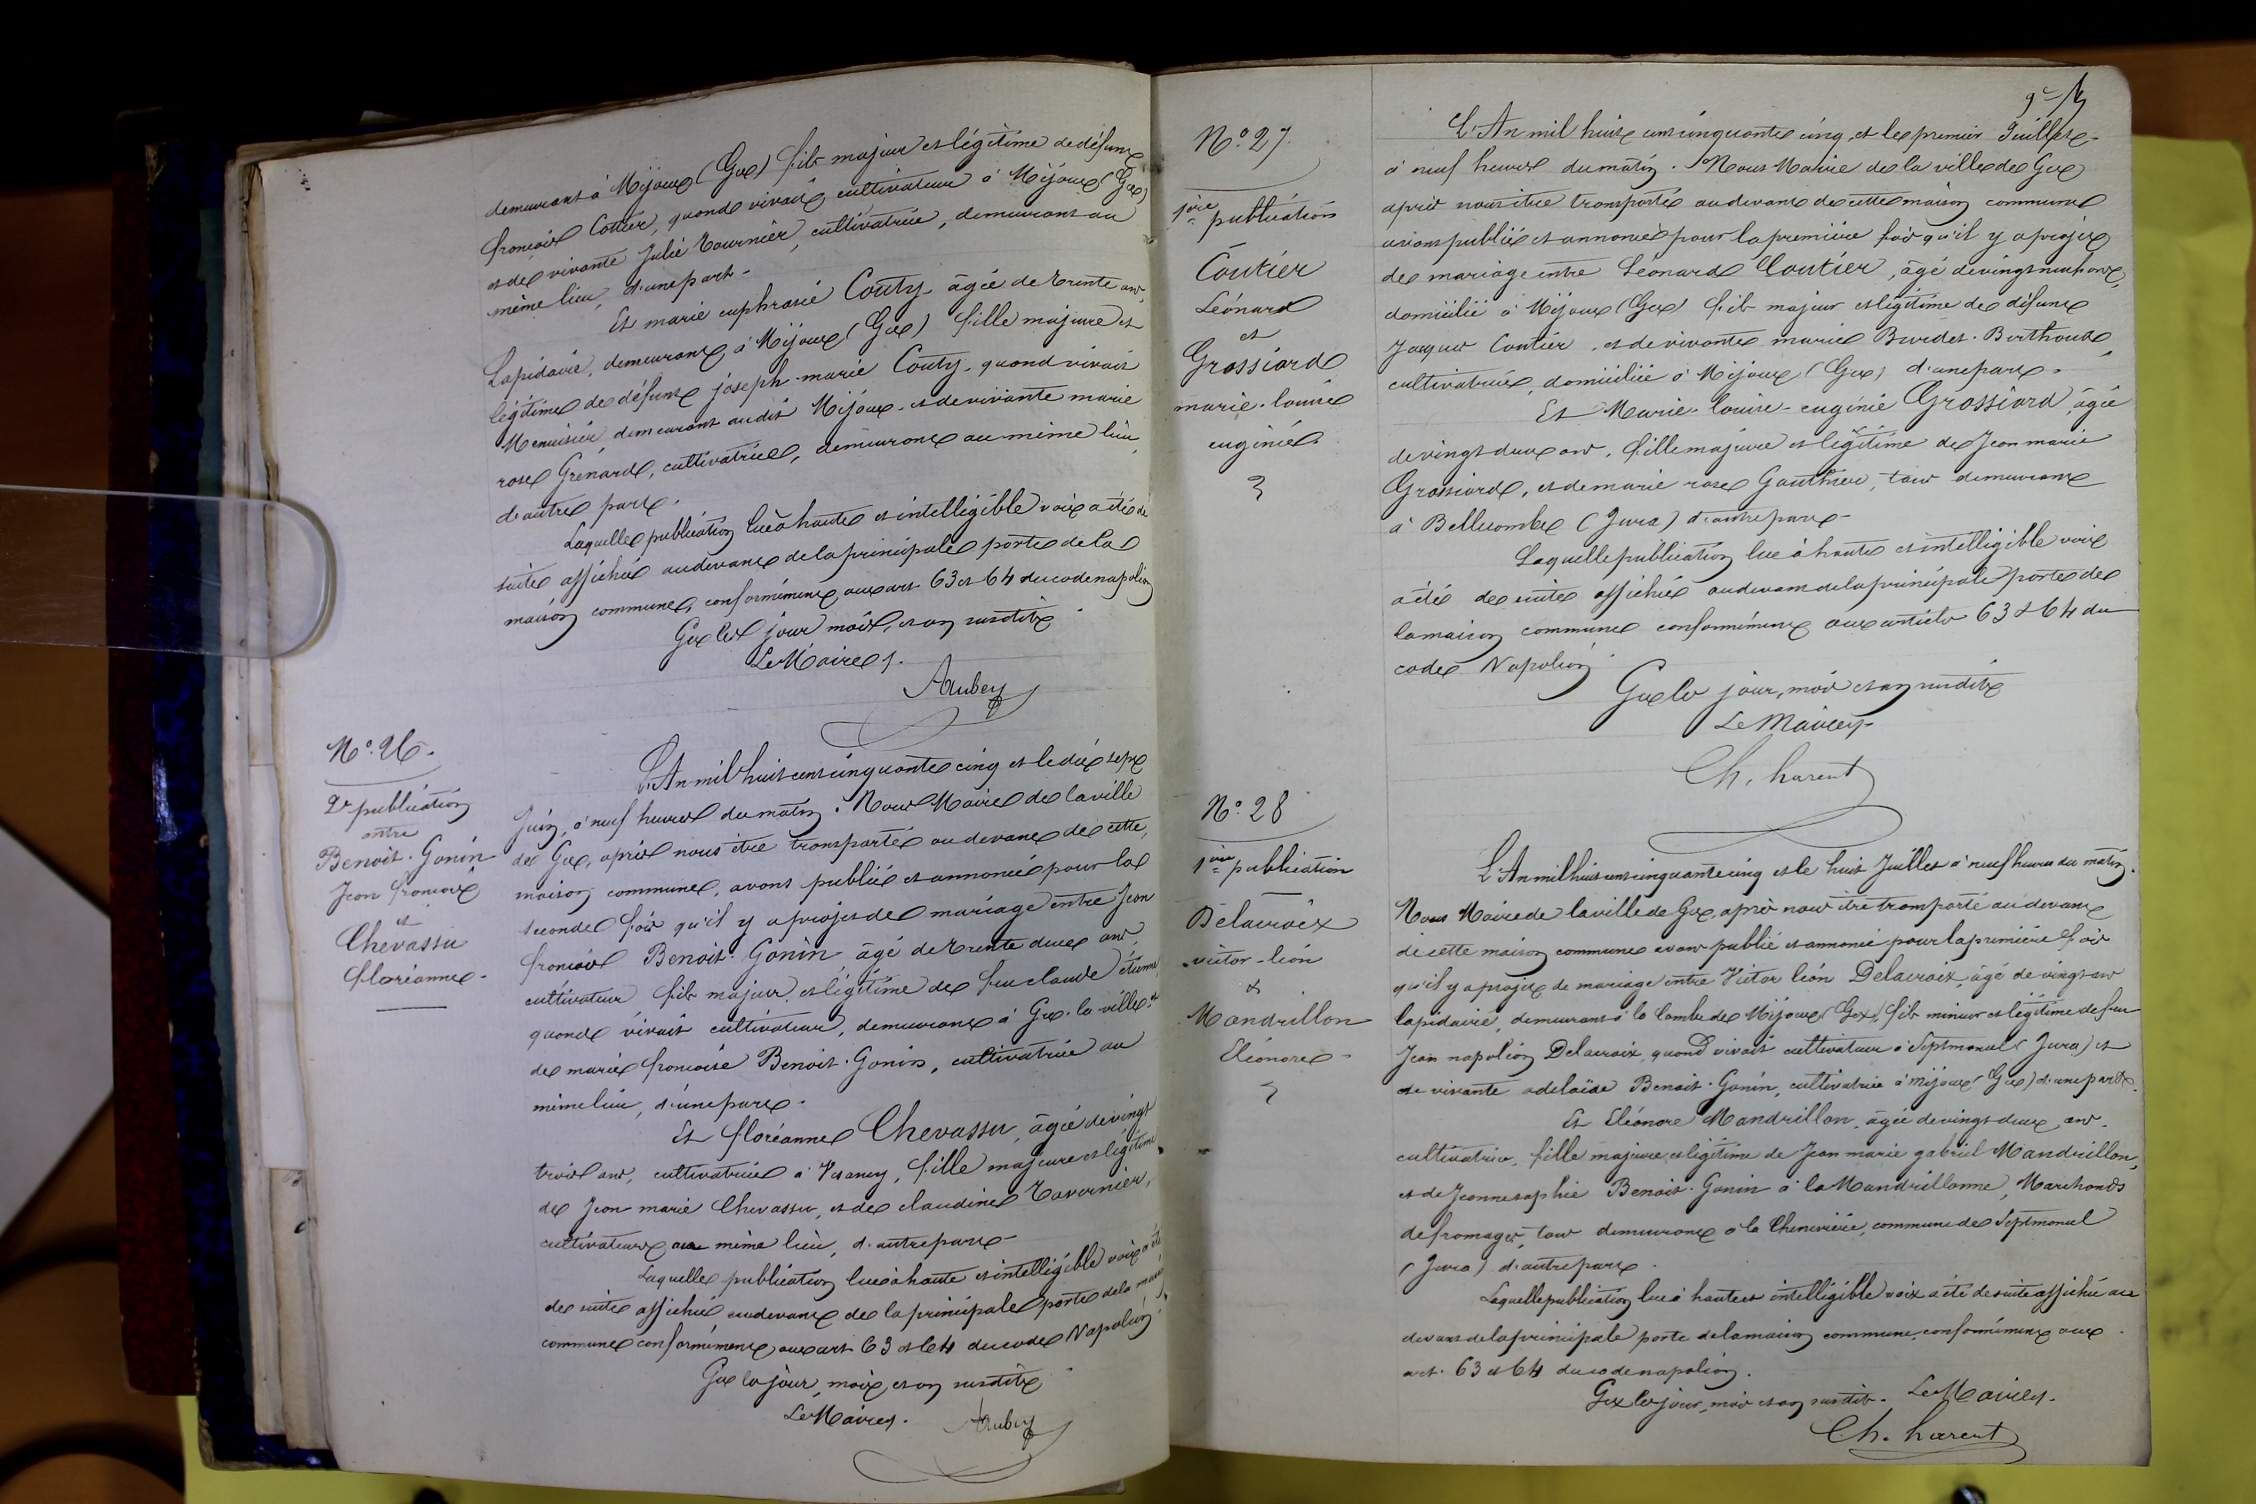 demeurant à Mijoux (Gex) fils majeur et légitime de défunt
françois Cottier, quand vivait cultivateur à Mijoux (Gex)
et de vivante Julie Tournier, cultivatrice, demeurant au
même lieu, d'une part.
Et marie euphrasie Couty âgée de trente ans,
Lapidaire, demeurant à Mijoux (Gex) fille majeure et
légitime de défunt joseph-marie Couty, quand vivait
Menuisier, demeurant au dit Mijoux, et de vivante marie
rose Grenard, cultivatrice, demeurant au même lieu,
d'autre part.
Laquelle publication lue à haute et intelligible voix a été de
suite affichée au devant de la principale porte de la
maison commune, conformément aux art. 63 et 64 du code napoléon
Gex les jour mois, et an susdits
Le Maire.
Aubey
N° 26.
2e publication
entre
Benoit-Gonin
Jean françois
et
Chevassu
floréanne
L'An mil huit cent cinquante cinq et le dix sept
Juin, à neuf heures du matin. Nous Maire de la ville
de Gex, après nous être transporté au devant de cette
maison commune, avons publié et annoncé pour la
seconde fois qu'il y a projet de mariage entre Jean
françois Benoit-Gonin âgé de trente deux ans,
cultivateur fils majeur et légitime de feu claude étienne
quand vivait cultivateur, demeurant à Gex-la-ville, et
de marie françoise Benoit-Gonin, cultivatrice au
même lieu, d'une part.
Et floréanne Chevassu, âgée de vingt
trois ans, cultivatrice à Vesancy, fille majeure et légitime
de Jean marie Chevassu, et de claudine Tavernier,
cultivateurs au même lieu, d'autre part
Laquelle publication lue à haute et intelligible voix a été
de suite affichée, au devant de la principale porte de la maison
commune conformément aux art. 63 et 64 du code Napoléon
Gex les jour, mois, et an susdits
Le Maire.
Aubey
N° 27.
1ère publication
Coutier
Léonard
et
Grossiard
marie-louise
eugénie
L'An mil huit cent cinquante cinq, et le premier Juillet
à neuf heures du matin. Nous Maire de la ville de Gex
après nous être transporté au devant de cette maison commune
avons publié et annoncé pour la première fois qu'il y a projet
de mariage entre Léonard Coutier, âgé de vingt neuf ans,
domicilié à Mijoux (Gex) fils majeur et légitime de défunt
Jacques Coutier, et de vivante marie Burdet-Berthoud,
cultivatrice, domiciliée à Mijoux (Gex) d'une part.
Et Marie-louise-eugénie Grossiard, âgée
de vingt deux ans, fille majeure et légitime de Jean marie
Grossiard, et de marie rose Gauthier, tous demeurant
à Bellecombe (Jura) d'autre part
Laquelle publication lue à haute et intelligible voix
a été de suite affichée au devant de la principale porte de
la maison commune conformément aux articles 63 & 64 du
code Napoléon
Gex les jour, mois et an susdits
Le Maire
Ch. harent
N° 28
1ère publication
Delacroix
victor-léon
&
Mandrillon
Eléonore
L'An mil huit cent cinquante cinq et le huit Juillet à neuf heures du matin.
Nous Maire de la ville de Gex, après nous être transporté au devant
de cette maison commune avons publié et annoncé pour la première fois
qu'il y a projet de mariage entre Victor léon Delacroix, âgé de vingt ans
lapidaire, demeurant à la Combe de Mijoux (Gex), fils mineur et légitime de feu
Jean napoléon Delacroix, quand vivait cultivateur à Septmoncel (Jura) et
de vivante adelaïde Benoit-Gonin, cultivatrice à Mijoux (Gex) d'une part.
Et Eléonore Mandrillon, âgée de vingt deux ans.
cultivatrice, fille majeure et légitime de Jean marie gabriel Mandrillon,
et de Jeanne sophie Benoit-Gonin à la Mandrillonne, Marchands
de fromages, tous demeurant à la Cheneviere, commune de Septmoncel
(Jura) d'autre part.
Laquelle publication lue à haute et intelligible voix a été de suite affichée au
devant de la principale porte de la maison commune, conformément aux
art. 63 et 64 du code napoléon.
Gex les jour, mois et an susdits. Le Maire.
Ch. harent